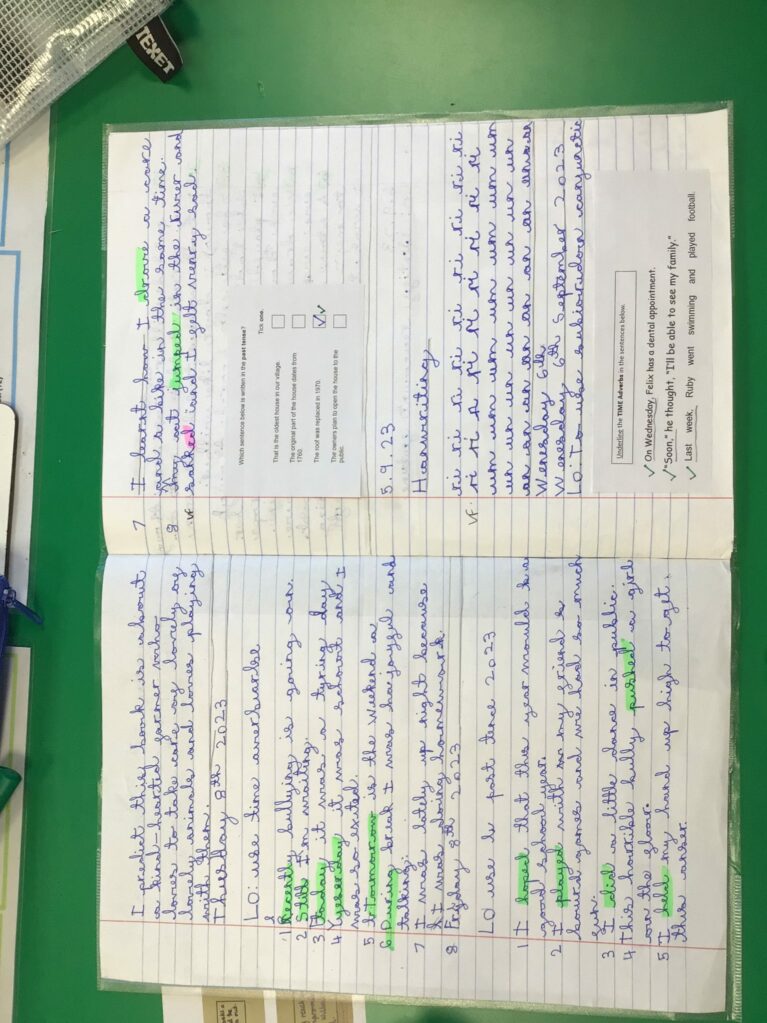 I predict this book is about
a kind-hearted farmer who
loves to take care of lovely
lovely animals and loves playing
with them.
Thursday 8th 2023
LO: use time averbiarbe
1 Recently bullying is going on.
2 Still I'm waiting.
3 Today it was a tyring day
4 Yeserday it was school and I
was so exited.
5 Tomorow is the Weekend
6 During break I was bajoyful and
talking.
7 I was lately up night because
I was doing homework.
8 Fryday 8th 2023
LO use to past tence 2023
1 I hoped that this year would be a
good school year.
2 I played with my friend
board games and we had so much
fun.
3 I did a little dance in public.
4 This horrible bully pushed a girl
on the floor.
5 I held my hand up high to get
this anser.
7 I learnt how I drove a care
and a bike in the same time.
8 My cat jumped in the river and
soked and I felt verry sad.
VF
Which sentence below is written in the past tense?
Tick one.
That is the oldest house in our village.
The original part of the house dates from
1760.
The roof was replaced in 1970.
The owners plan to open the house to the
public.
5.9.23
Hanwriting
ri ri ri ri ri ri ri ri ri
VF: ri ri ri ri ri ri ri ri
um um um um um um um
un un un un un un un
an an an an an an an an
Wenesday 6th
Wenesday 6th September 2023
LO: To use subiordorn conjunctio
Underline the TIME Adverbs in the sentences below.
On Wednesday, Felix has a dental appointment.
"Soon," he thought, "I'll be able to see my family."
Last week, Ruby went swimming and played football.
TEXET